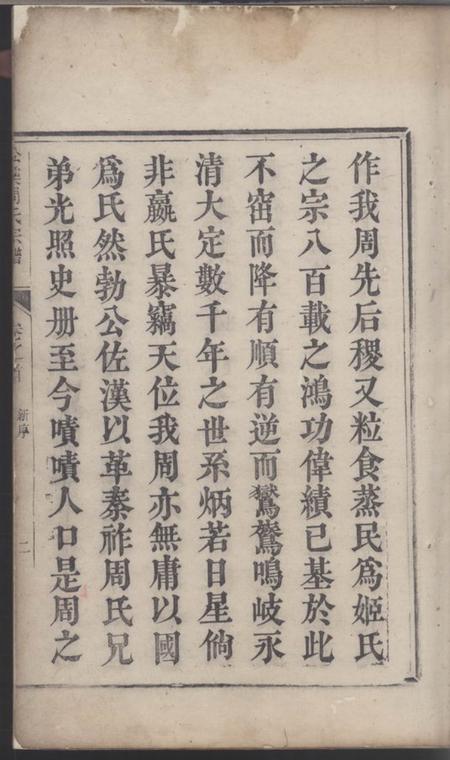 作我周先后稷又粒食蒸民為姬氏
之宗八百載之鴻功偉績已基於此
不窋而降有順有逆而鸑鷟鳴岐永
清大定數千年之世系炳若日星倘
非嬴氏暴竊天位我周亦無庸以國
為氏然勃公佐漢以革秦祚周氏兄
弟光照史册至今嘖嘖人口是周之
周氏宗譜
卷之首
新序
二